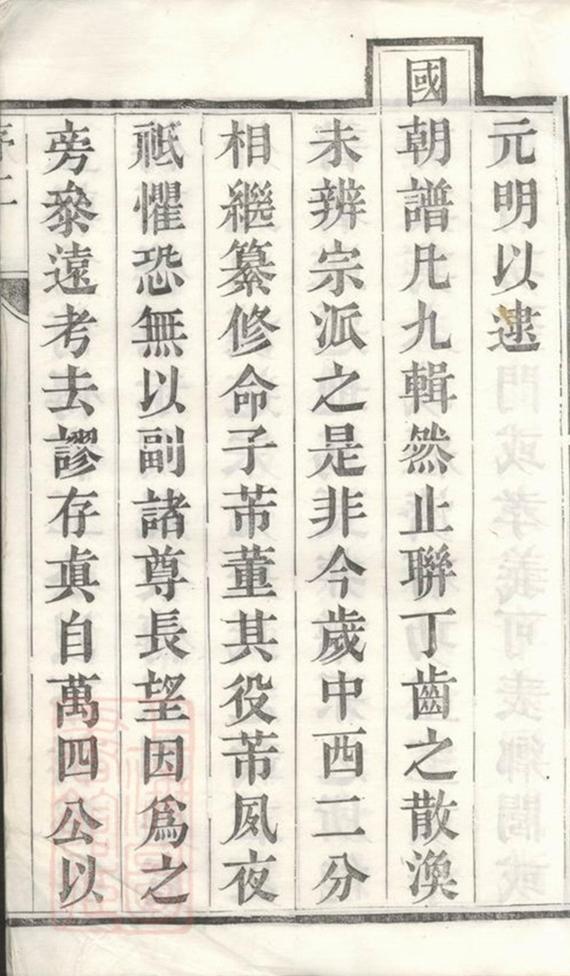 元明以逮
國朝譜凡九輯然止聯丁齒之散渙
未辨宗派之是非今歲中西二分
相繼纂修命子芾董其役芾夙夜
祗懼恐無以副諸尊長望因爲之
旁叅遠考去謬存真自萬四公以